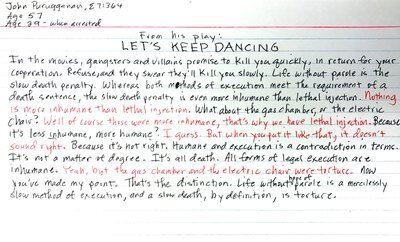 John Purugganan, E71364
Age 57
Age 29 - when arrested
From his play:
LET'S KEEP DANCING
In the movies, gangsters and villains promise to kill you quickly, in return for your
cooperation. Refuse, and they swear they'll kill you slowly. Life without parole is the
slow death penalty. Whereas both methods of execution meet the requirement of a
death sentence, the slow death penalty is even more inhumane than lethal injection. Nothing
is more inhumane than lethal injection. What about the gas chamber, or the electric
chair? Well of course those were more inhumane, that's why we have lethal injection. Because
it's less inhumane, more humane? I guess. But when you put it like that, it doesn't
sound right. Because it's not right. Humane and execution is a contradiction in terms.
It's not a matter of degree. It's all death. All forms of legal execution are
inhumane. Yeah, but the gas chamber and the electric chair were torture. Now
you've made my point. That's the distinction. Life without hope of parole is a mercilessly
slow method of execution, and a slow death, by definition, is torture.